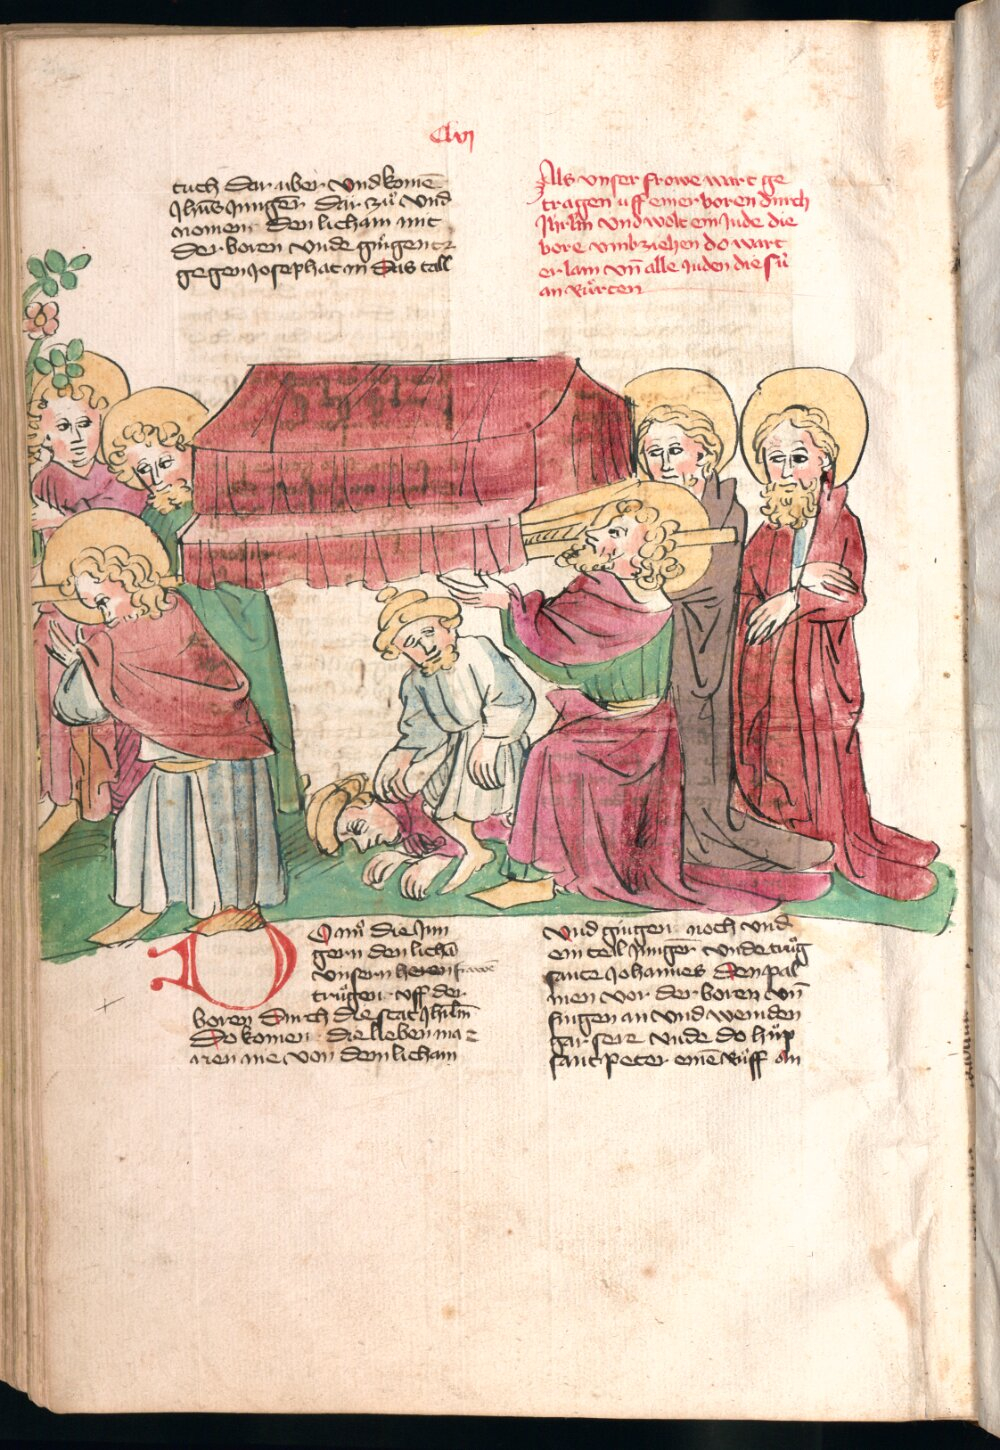 Clvj
tuch dar uber vnd komē
Jhūs Junger dar zuͦ vnd
nomen den licham mit
der boren vnde gingent
gegen Josephat in das tall
Als vnser frowe wart ge
tragen uff einer boren durch
Jhrlm vnd wolt ein Jude die
bore vmbziehen do wart
er lam vn̄ alle Juden die sú
an ruͦrten
DO nuͦ die Jun
gern den lichā
vnsern heren frawē
truͦgen vff der
boren durch die stat Jhrlm̄
Do komen die lieben ma
rien me von dem licham
vnd gingen noch vnd
ein teil Junger vnde truͦg
sante Johannes den pal
men vor der boren vn̄
singen an vnd weinden
gar sere vnde do huͦp
sant peter einē ruͦff an